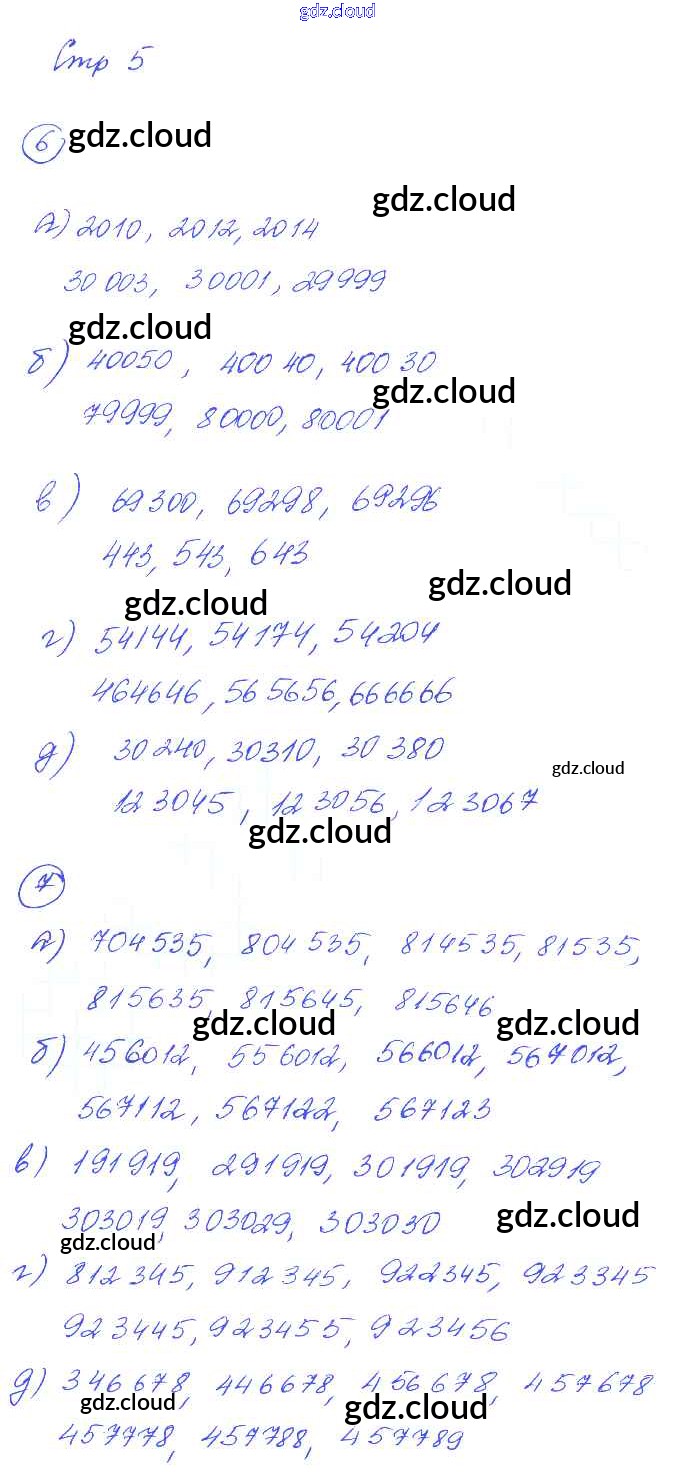 gdz.cloud
Стр 5
6 gdz.cloud
gdz.cloud
А) 2010, 2012, 2014
30 003, 30001, 29999
gdz.cloud
б) 40050, 400 40, 400 30
gdz.cloud
79999, 80000, 80001
в) 69300, 69298, 69296
443, 543, 643
gdz.cloud
gdz.cloud
г) 54144, 54174, 54204
464646, 565656, 666666
д) 30240, 30310, 30 380
gdz.cloud
123045, 123056, 123067
gdz.cloud
7
А) 704535, 804 535, 814535, 81535,
815635, 815645, 815646
gdz.cloud gdz.cloud
б) 456012, 556012, 566012, 567012,
567112, 567122, 567123
в) 191919, 291919, 301919, 302919
303019, 303029, 303030
gdz.cloud
gdz.cloud
г) 812345, 912345, 922345, 923345
923445, 923455, 923456
д) 346678, 446678, 456678, 457678
gdz.cloud gdz.cloud
457778, 457788, 457789